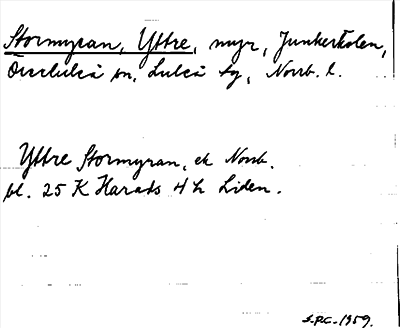 Stormyran, Yttre, myr, Junkerträn,
Överluleå sn, Luleå tg, Norrb. l.
Yttre Stormyran, ek Norrb.
bl. 25 K Harads 4 h Liden.
1959.